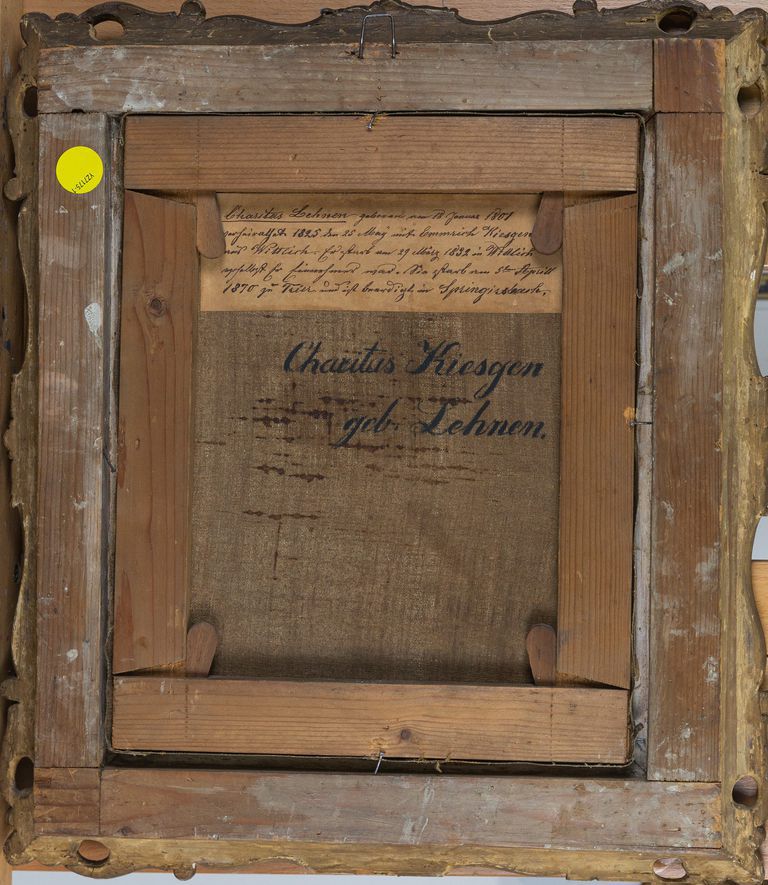 YZ7175-1
Charitas Lehnen geboren am 18 Januar 1801
verheirathet 1825 den 25 May mit Emmrich Kiesgen
aus Wittlich. Er starb am 29 März 1832 in Wittlich
woselbst Er Einnehmer war. Sie starb am 5ten April
1870 zu Trier und ist beerdigt in Springiersbach.
Charitas Kiesgen
geb. Lehnen.